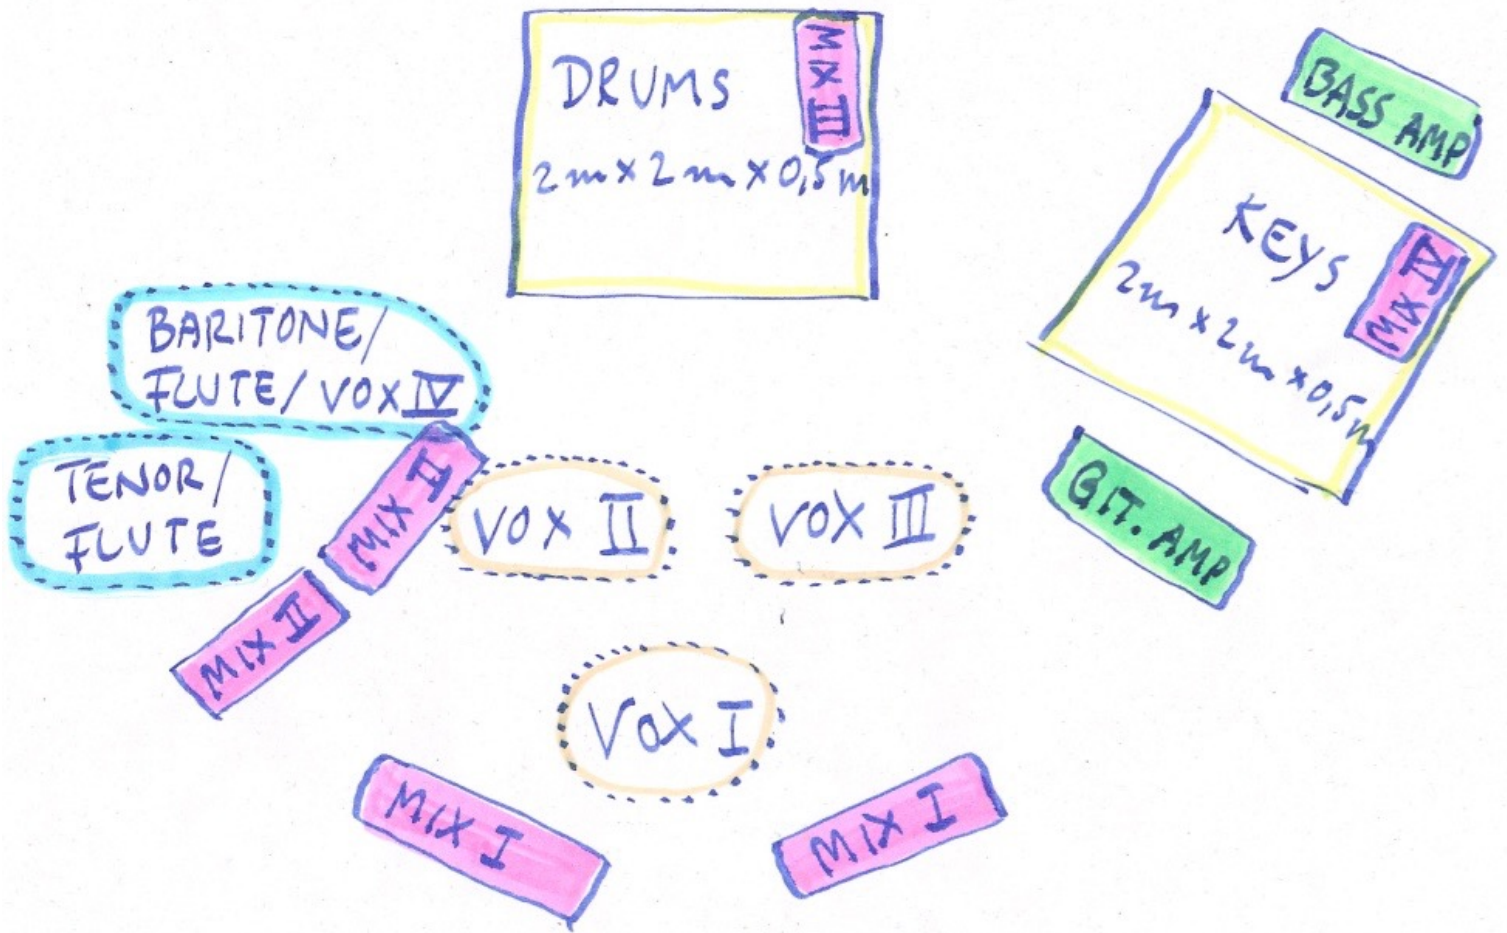 DRUMS
2m x 2m x 0,5m
MIX III
BASS AMP
KEYS
2m x 2m x 0,5m
MIX IV
BARITONE/
FLUTE/VOX IV
TENOR/
FLUTE
MIX II
MIX II
VOX II
VOX III
GIT. AMP
VOX I
MIX I
MIX I